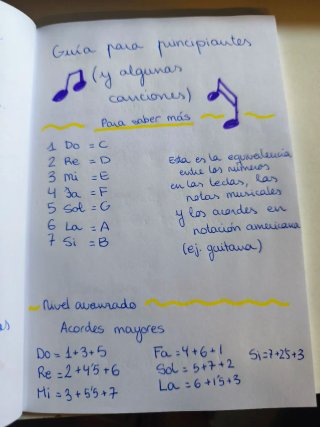 Guía para principiantes
(y algunas
canciones)
Para saber más
1 Do = C
2 Re = D
3 Mi = E
4 Fa = F
5 Sol = G
6 La = A
7 Si = B
Esta es la equivalencia
entre los números
en las teclas, las
notas musicales
y los acordes en
notación americana
(ej. guitarra)
Nivel avanzado
Acordes mayores
Do = 1+3+5
Re = 2+4'5+6
Mi = 3+5'5+7
Fa = 4+6+1
Sol = 5+7+2
La = 6+1'5+3
Si = 7+2'5+3